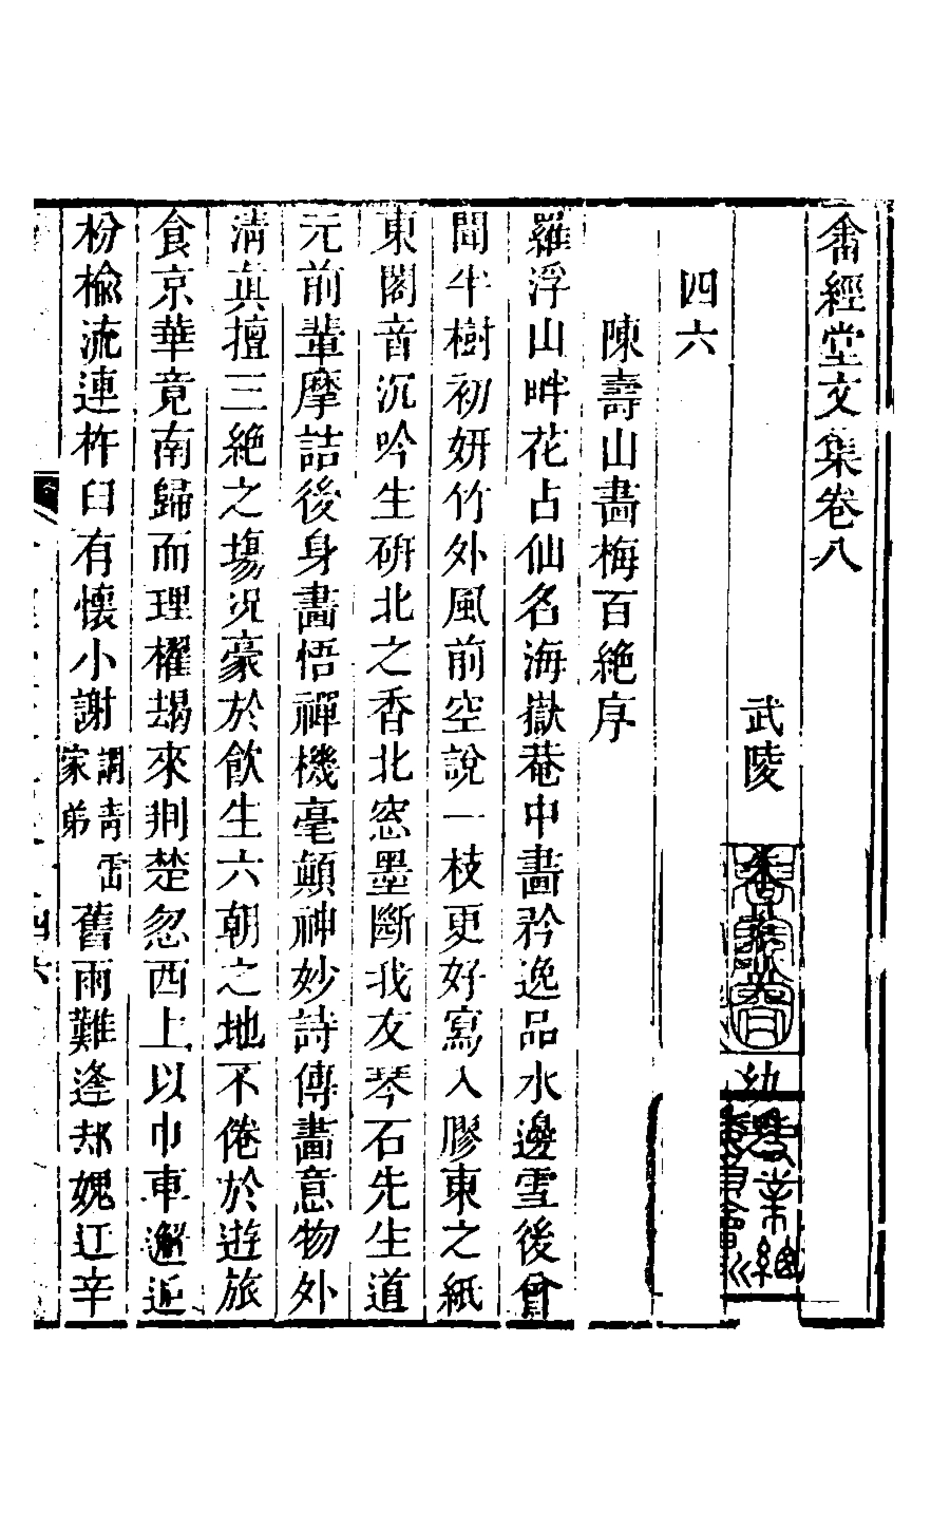 畬經堂文集卷八
武陵 朱景英 幼芝
四六
陳壽山畵梅百絶序
羅浮山畔花占仙名海嶽菴中畵矜逸品水邊雪後曾
聞半樹初妍竹外風前空說一枝更好寫入膠東之紙
東閣音沉吟生硏北之香北窓墨斷我友琴石先生道
元前輩摩詰後身畵悟禪機毫顛神妙詩傳畵意物外
淸眞擅三絶之塲况豪於飮生六朝之地不倦於遊旅
食京華竟南歸而理櫂朅來荆楚忽西上以巾車邂逅
枌楡流連杵臼有懷小謝謂靑雷家弟舊雨難逢却媿迂辛